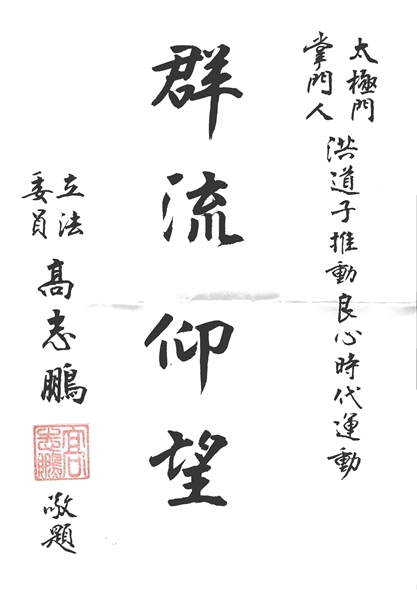 太極門
掌門人 洪道子推動良心時代運動
群流仰望
立法
委員 高志鵬
高志鵬
敬題